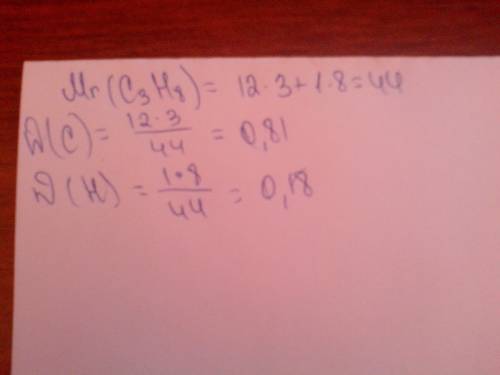 Mr(C₃H₈) = 12·3+1·8=44
W(C) = 12·3/44 = 0,81
W(H) = 1·8/44 = 0,18